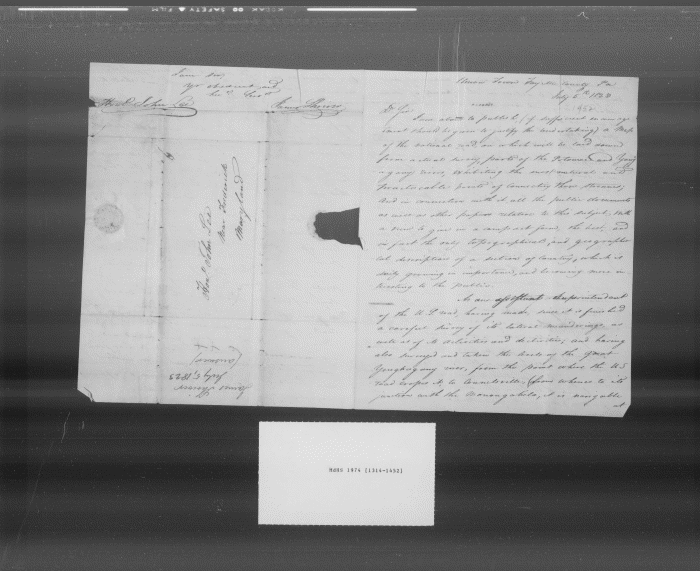 Fayette County Pa
July 5th 1823
Dr Sir
I am about to publish (if sufficient encourage-
ment should be given to justify the undertaking) a Map
of the national road, on which will be laid down
from actual survey, parts of the Potomac and Youg
agany rivers, exhibiting the most natural and
practicable points of connecting those streams,
And in connection with it all the public documents
as well as other papers relative to this subject, with
a view to give in a compact form, the best, and
in fact the only topographical, and geographi-
cal description of a section of country, which is
daily growing in importance, and becoming more in-
teresting to the public.
As an Superintendent
of the U.S. road, having made
a careful survey of its meanderings as
well as of its and having
also surveyed and taken the levels of the great
Youghagany river, from the point where the U.S.
road crosses it, to Connelsville, (from whence to its
junction with the Monongahela, it is navigable
at
I am Sir,
yr obedient and
John Lee
James Shriver
Honl John Lee
Near Frederick
Maryland
James Shriver
July 5, 1823
(answered)
MdHR 1974 [1314-1450]